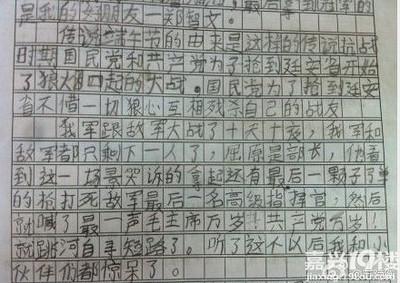 是我的好朋友一郑智文。
传说端午节的由来是这样的传说抗战
时期国民党和共产党为了抢到延安省开始
了狼火四起的大战。国民党为了抢到延安
省不惜一切狠心互相残杀自己的战友
我军跟敌军大战了十天十夜,我军和
敌军都只剩下一人了,屈原是部长,他看
到这一场景哭诉的拿起还有最后一颗子弹
的枪打死敌军最后一名高级指挥官,然后
就喊了最一声毛主席万岁!共产党万岁!
就跳河自寻短路了。听了这个以后我和小
伙伴们都惊呆了。
嘉兴19楼
jiaxing.19lou.com